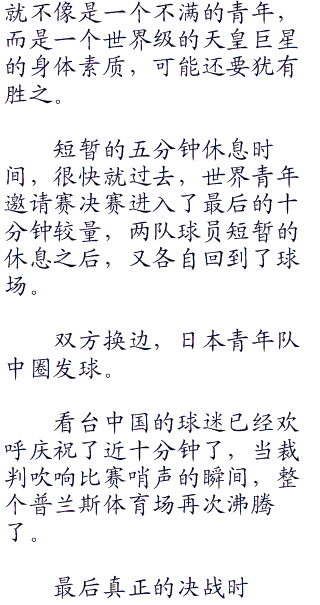 就不像是一个不满的青年，
而是一个世界级的天皇巨星
的身体素质，可能还要犹有
胜之。
短暂的五分钟休息时
间，很快就过去，世界青年
邀请赛决赛进入了最后的十
分钟较量，两队球员短暂的
休息之后，又各自回到了球
场。
双方换边，日本青年队
中圈发球。
看台中国的球迷已经欢
呼庆祝了近十分钟了，当裁
判吹响比赛哨声的瞬间，整
个普兰斯体育场再次沸腾
了。
最后真正的决战时